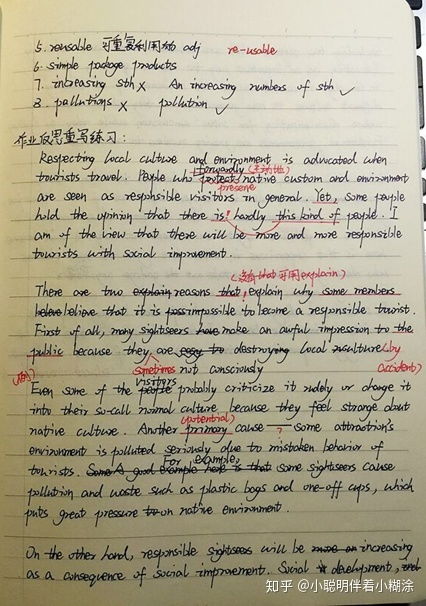 5. reusable 可重复利用的 adj re-usable
6. simple package products
7. increasing sth x An increasing numbers of sth ✓
8. pollutions x pollution ✓
作业反思重写练习：
Respecting local culture and environment is advocated when
tourists travel. People who protect native custom and environment
preserve
are seen as responsible visitors in general. Yet, some people
hold the opinion that there is hardly this kind of people. I
am of the view that there will be more and more responsible
tourists with social improvement.
(没有that 可用explain)
There are two explain reasons that explain why some members
believe that it is impossible to become a responsible tourist.
First of all, many sightseers have make an awful impression to the
public because they are easy to destroying local culture (by
accident)
sometimes not consciously
visitors
Even some of the people probably criticize it rudely or change it
into their so-call normal culture, because they feel strange about
(potential)
native culture. Another primary cause ? some attraction's
environment is polluted seriously due to mistaken behavior of
For example,
tourists. Some A good example here is that some sightseers cause
pollution and waste such as plastic bags and one-off cups, which
puts great pressure to on native environment.
On the other hand, responsible sightseers will be more on increasing
as a consequence of social improvement. Social development, and
知乎 @小聪明伴着小糊涂